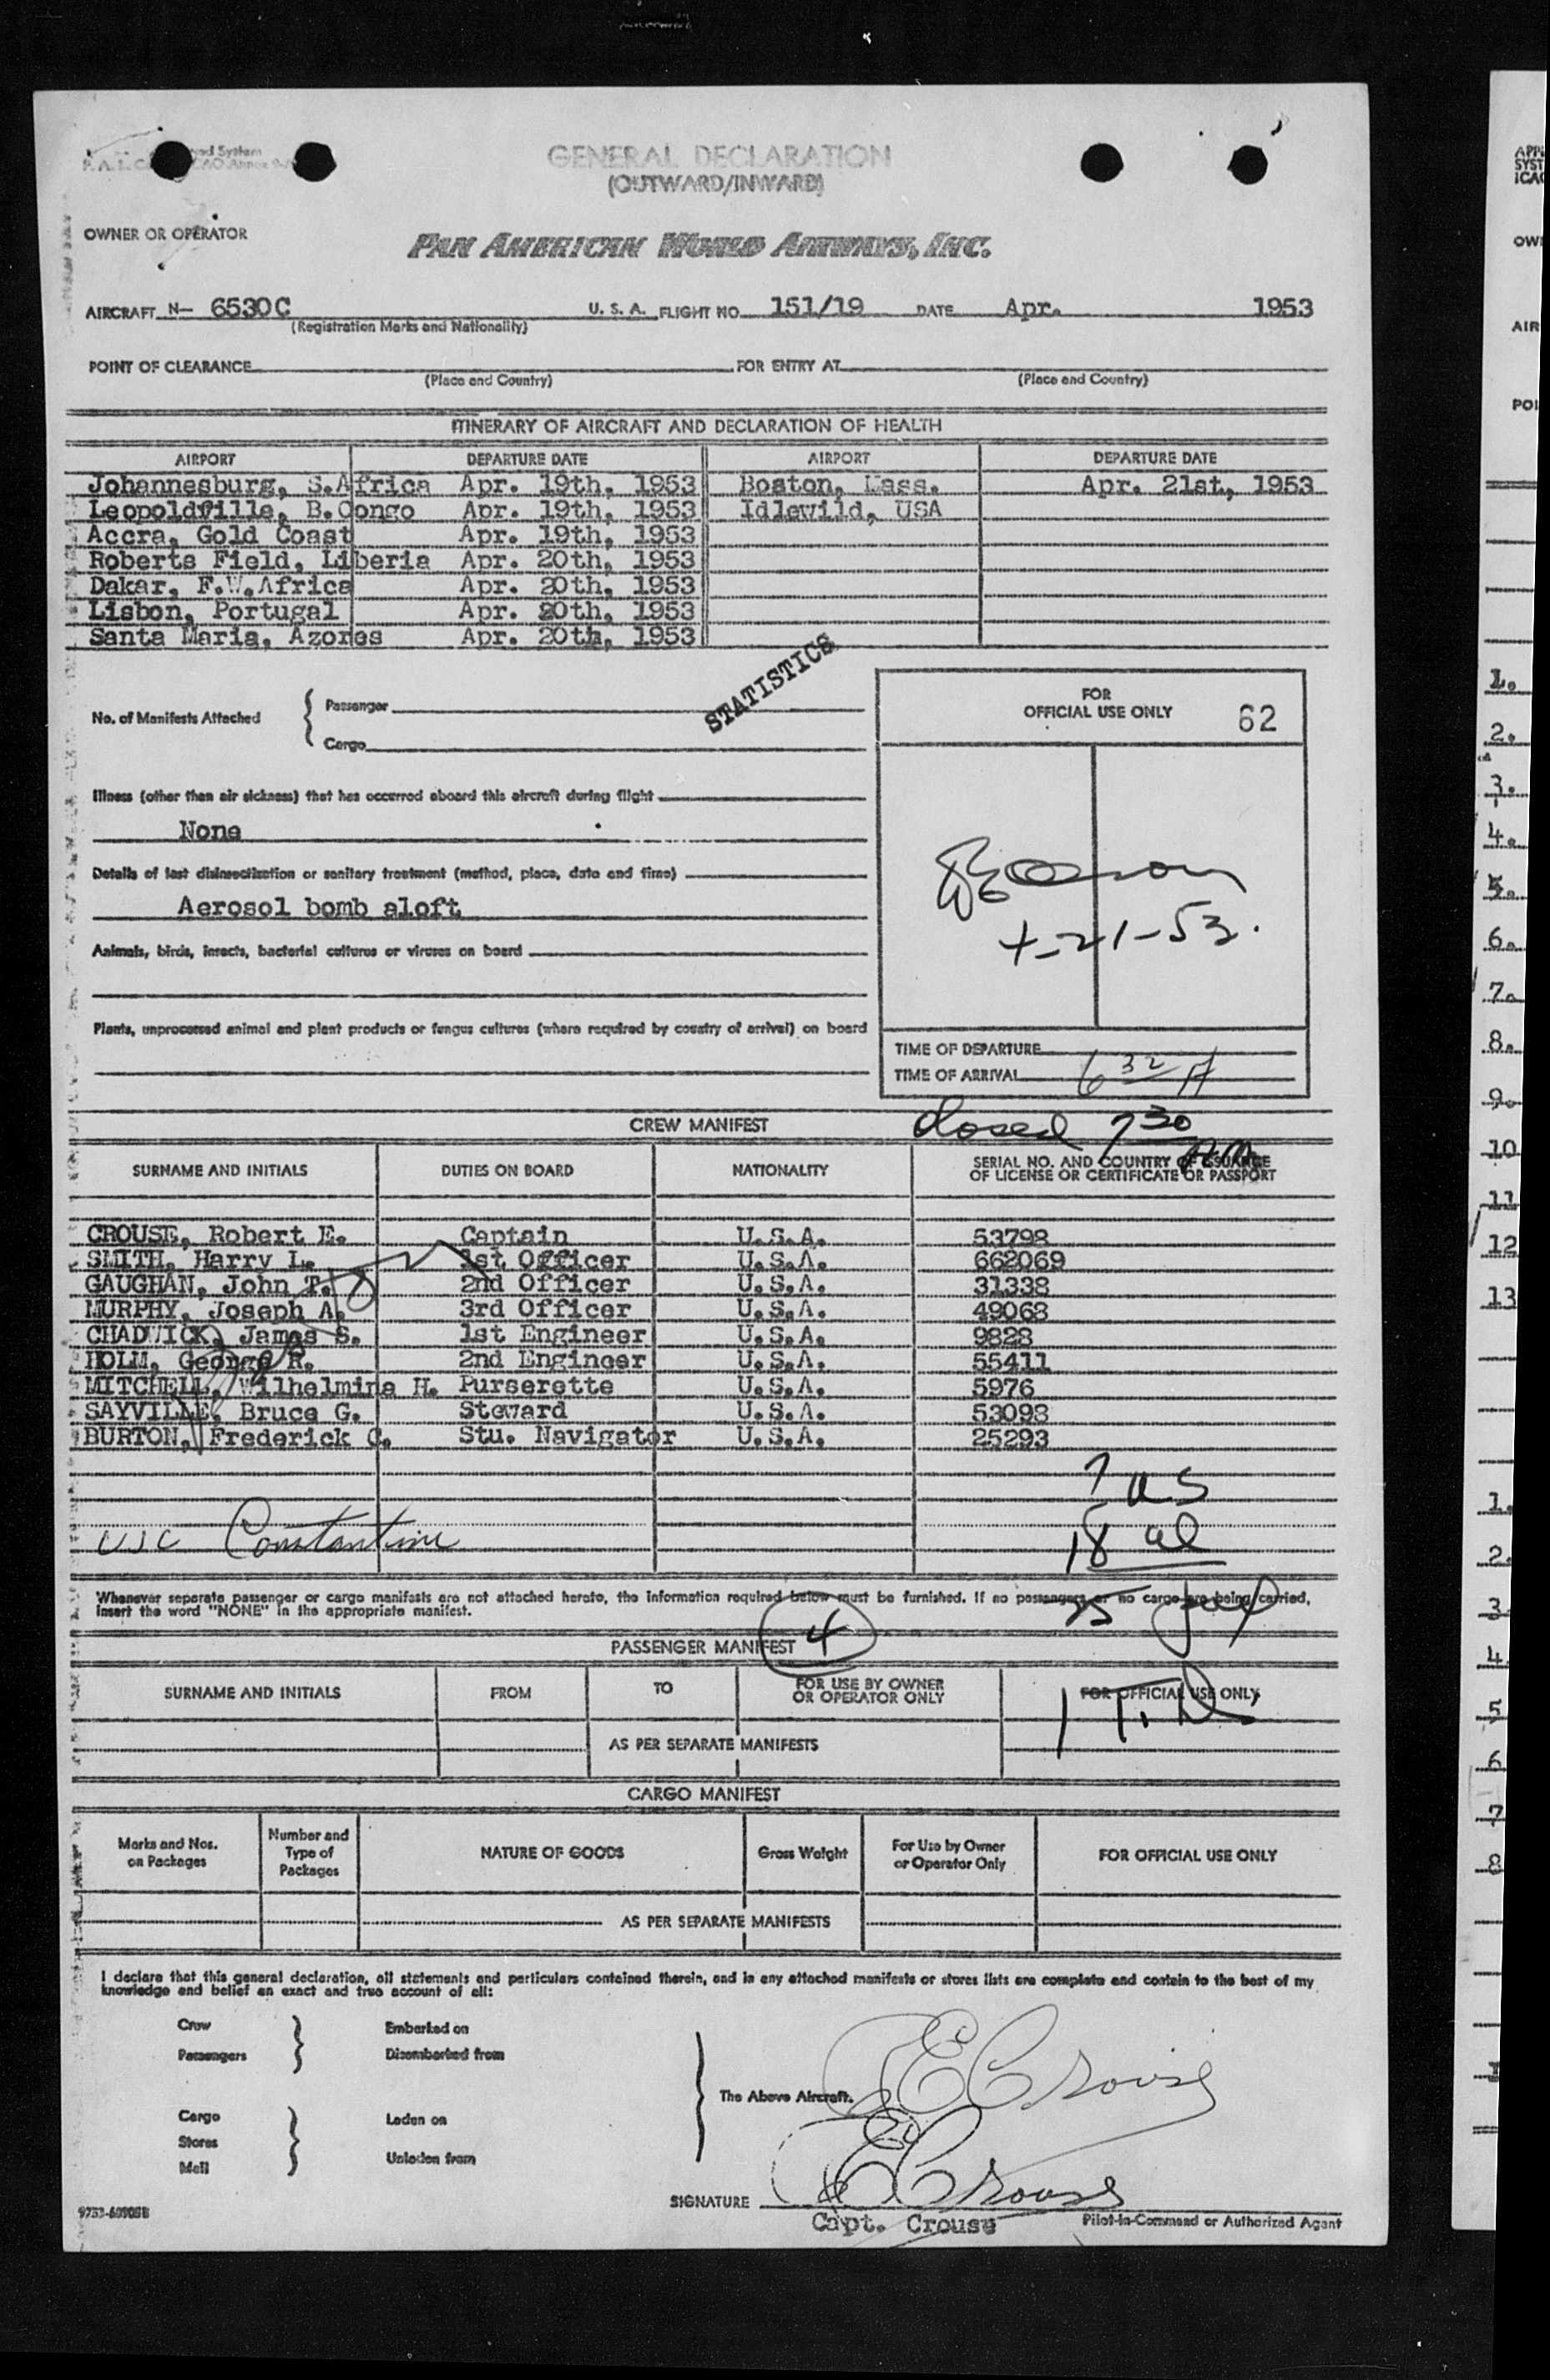 GENERAL DECLARATION
(OUTWARD/INWARD)
OWNER OR OPERATOR
PAN AMERICAN WORLD AIRWAYS, INC.
AIRCRAFT N- 6530C U. S. A. FLIGHT NO 151/19 DATE Apr. 1953
(Registration Marks and Nationality)
POINT OF CLEARANCE FOR ENTRY AT
(Place and Country) (Place and Country)
ITINERARY OF AIRCRAFT AND DECLARATION OF HEALTH
AIRPORT DEPARTURE DATE AIRPORT DEPARTURE DATE
Johannesburg, S.Africa Apr. 19th, 1953 Boston, Mass. Apr. 21st, 1953
Leopoldville, B.Congo Apr. 19th, 1953 Idlewild, USA
Accra, Gold Coast Apr. 19th, 1953
Roberts Field, Liberia Apr. 20th, 1953
Dakar, F.W.Africa Apr. 20th, 1953
Lisbon, Portugal Apr. 20th, 1953
Santa Maria, Azores Apr. 20th, 1953
STATISTICS
No. of Manifests Attached
Passenger
Cargo
FOR
OFFICIAL USE ONLY 62
Illness (other than air sickness) that has occurred aboard this aircraft during flight
None
Details of last disinsectization or sanitary treatment (method, place, date and time)
Aerosol bomb aloft
4-21-53.
Animals, birds, insects, bacterial cultures or viruses on board
Plants, unprocessed animal and plant products or fungus cultures (where required by country of arrival) on board
TIME OF DEPARTURE
TIME OF ARRIVAL 6 32 A
CREW MANIFEST closed 7 30 AM
SURNAME AND INITIALS DUTIES ON BOARD NATIONALITY SERIAL NO. AND COUNTRY OF ISSUANCE
OF LICENSE OR CERTIFICATE OR PASSPORT
CROUSE, Robert E. Captain U.S.A. 53798
SMITH, Harry L. 1st Officer U.S.A. 662069
GAUGHAN, John T. 2nd Officer U.S.A. 31338
MURPHY, Joseph A. 3rd Officer U.S.A. 49068
CHADWICK, James S. 1st Engineer U.S.A. 9828
HOLM, George R. 2nd Engineer U.S.A. 55411
MITCHELL, Wilhelmina H. Purserette U.S.A. 5976
SAYVILLE, Bruce G. Steward U.S.A. 53098
BURTON, Frederick C. Stu. Navigator U.S.A. 25293
7 US
USC Constantine 18 al
Whenever separate passenger or cargo manifests are not attached hereto, the information required below must be furnished. If no passengers or no cargo are being carried,
insert the word "NONE" in the appropriate manifest.
25
PASSENGER MANIFEST 4
SURNAME AND INITIALS FROM TO FOR USE BY OWNER
OR OPERATOR ONLY FOR OFFICIAL USE ONLY
AS PER SEPARATE MANIFESTS
CARGO MANIFEST
Marks and Nos.
on Packages
Number and
Type of
Packages
NATURE OF GOODS Gross Weight For Use by Owner
or Operator Only FOR OFFICIAL USE ONLY
AS PER SEPARATE MANIFESTS
I declare that this general declaration, all statements and particulars contained therein, and in any attached manifests or stores lists are complete and contain to the best of my
knowledge and belief an exact and true account of all:
Crew Embarked on
Passengers Disembarked from
The Above Aircraft.
Cargo Laden on
Stores
Mail Unladen from
R E Crouse
SIGNATURE R E Crouse
Capt. Crouse Pilot-in-Command or Authorized Agent
1.
2.
3.
4.
5.
6.
7.
8.
9.
10
11
12
13
1.
2.
3.
4
5
6
7
8